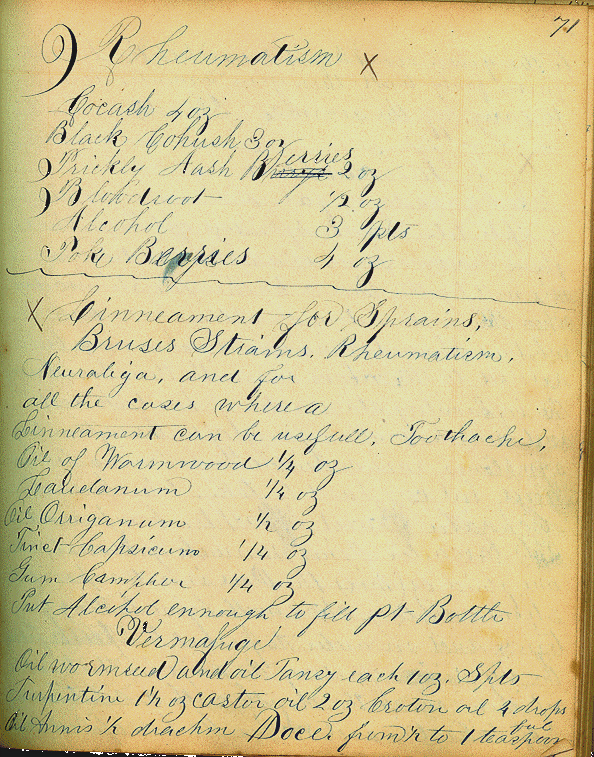 71
Rheumatism X
Cocash 4 oz
Black Cohush 3 oz
Prickly Aash Berries 2 oz
Bloodroot 1/2 oz
Alcohol 3 pts
Poke Berries 4 oz
X Linneament for Sprains,
Bruses Strains. Rheumatism,
Neuraliga, and for
all the cases where a
Linneament can be usefull, Toothache,
Oil of Wormwood 1/4 oz
Laudanum 1/4 oz
Oil Orriganum 1/2 oz
Tinct Capsicum 1/4 oz
Gum Campher 1/4 oz
Put Alcohol ennough to fill pt Bottle
Vermafuge
Oil wormseed and oil Tansy each 1 oz. Spts
Turpentine 1 1/2 oz castor oil 2 oz Croton oil 4 drops
Oil Annis 1/2 drachm Doce. from 1/2 to 1 teaspoon
ful